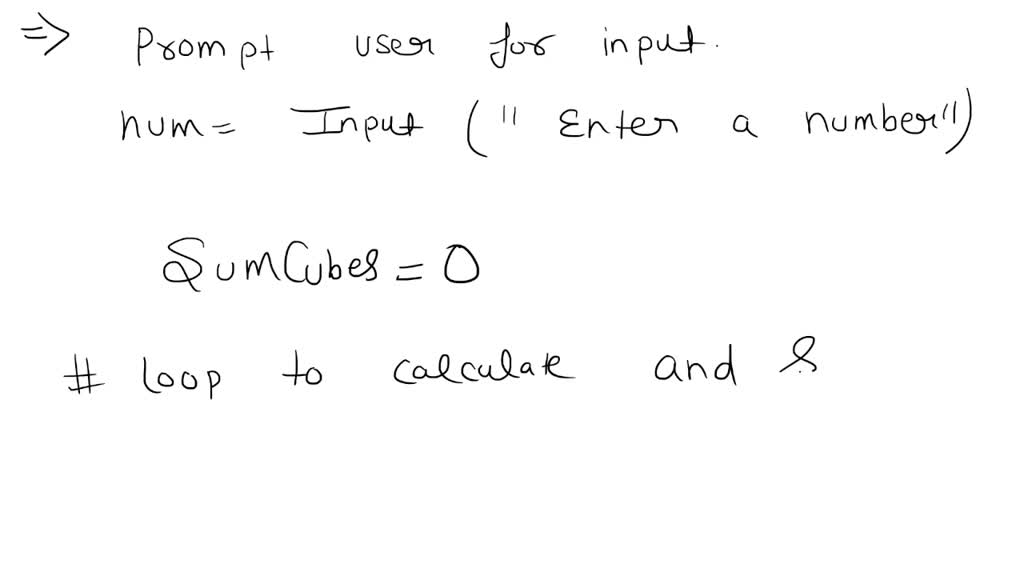 => Prompt user for input.
num = Input ( " Enter a number")
SumCubes = 0
# loop to calculate and S